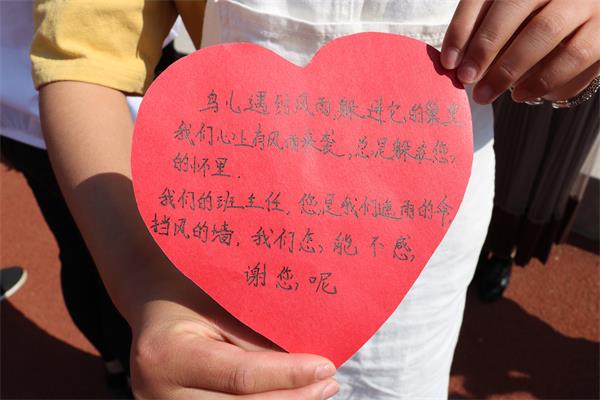 鸟儿遇到风雨,躲进它的巢里
我们心上有风雨袭,总是躲在您
的怀里.
我们的班主任,您是我们遮雨的伞
挡风的墙,我们怎能不感
谢您呢